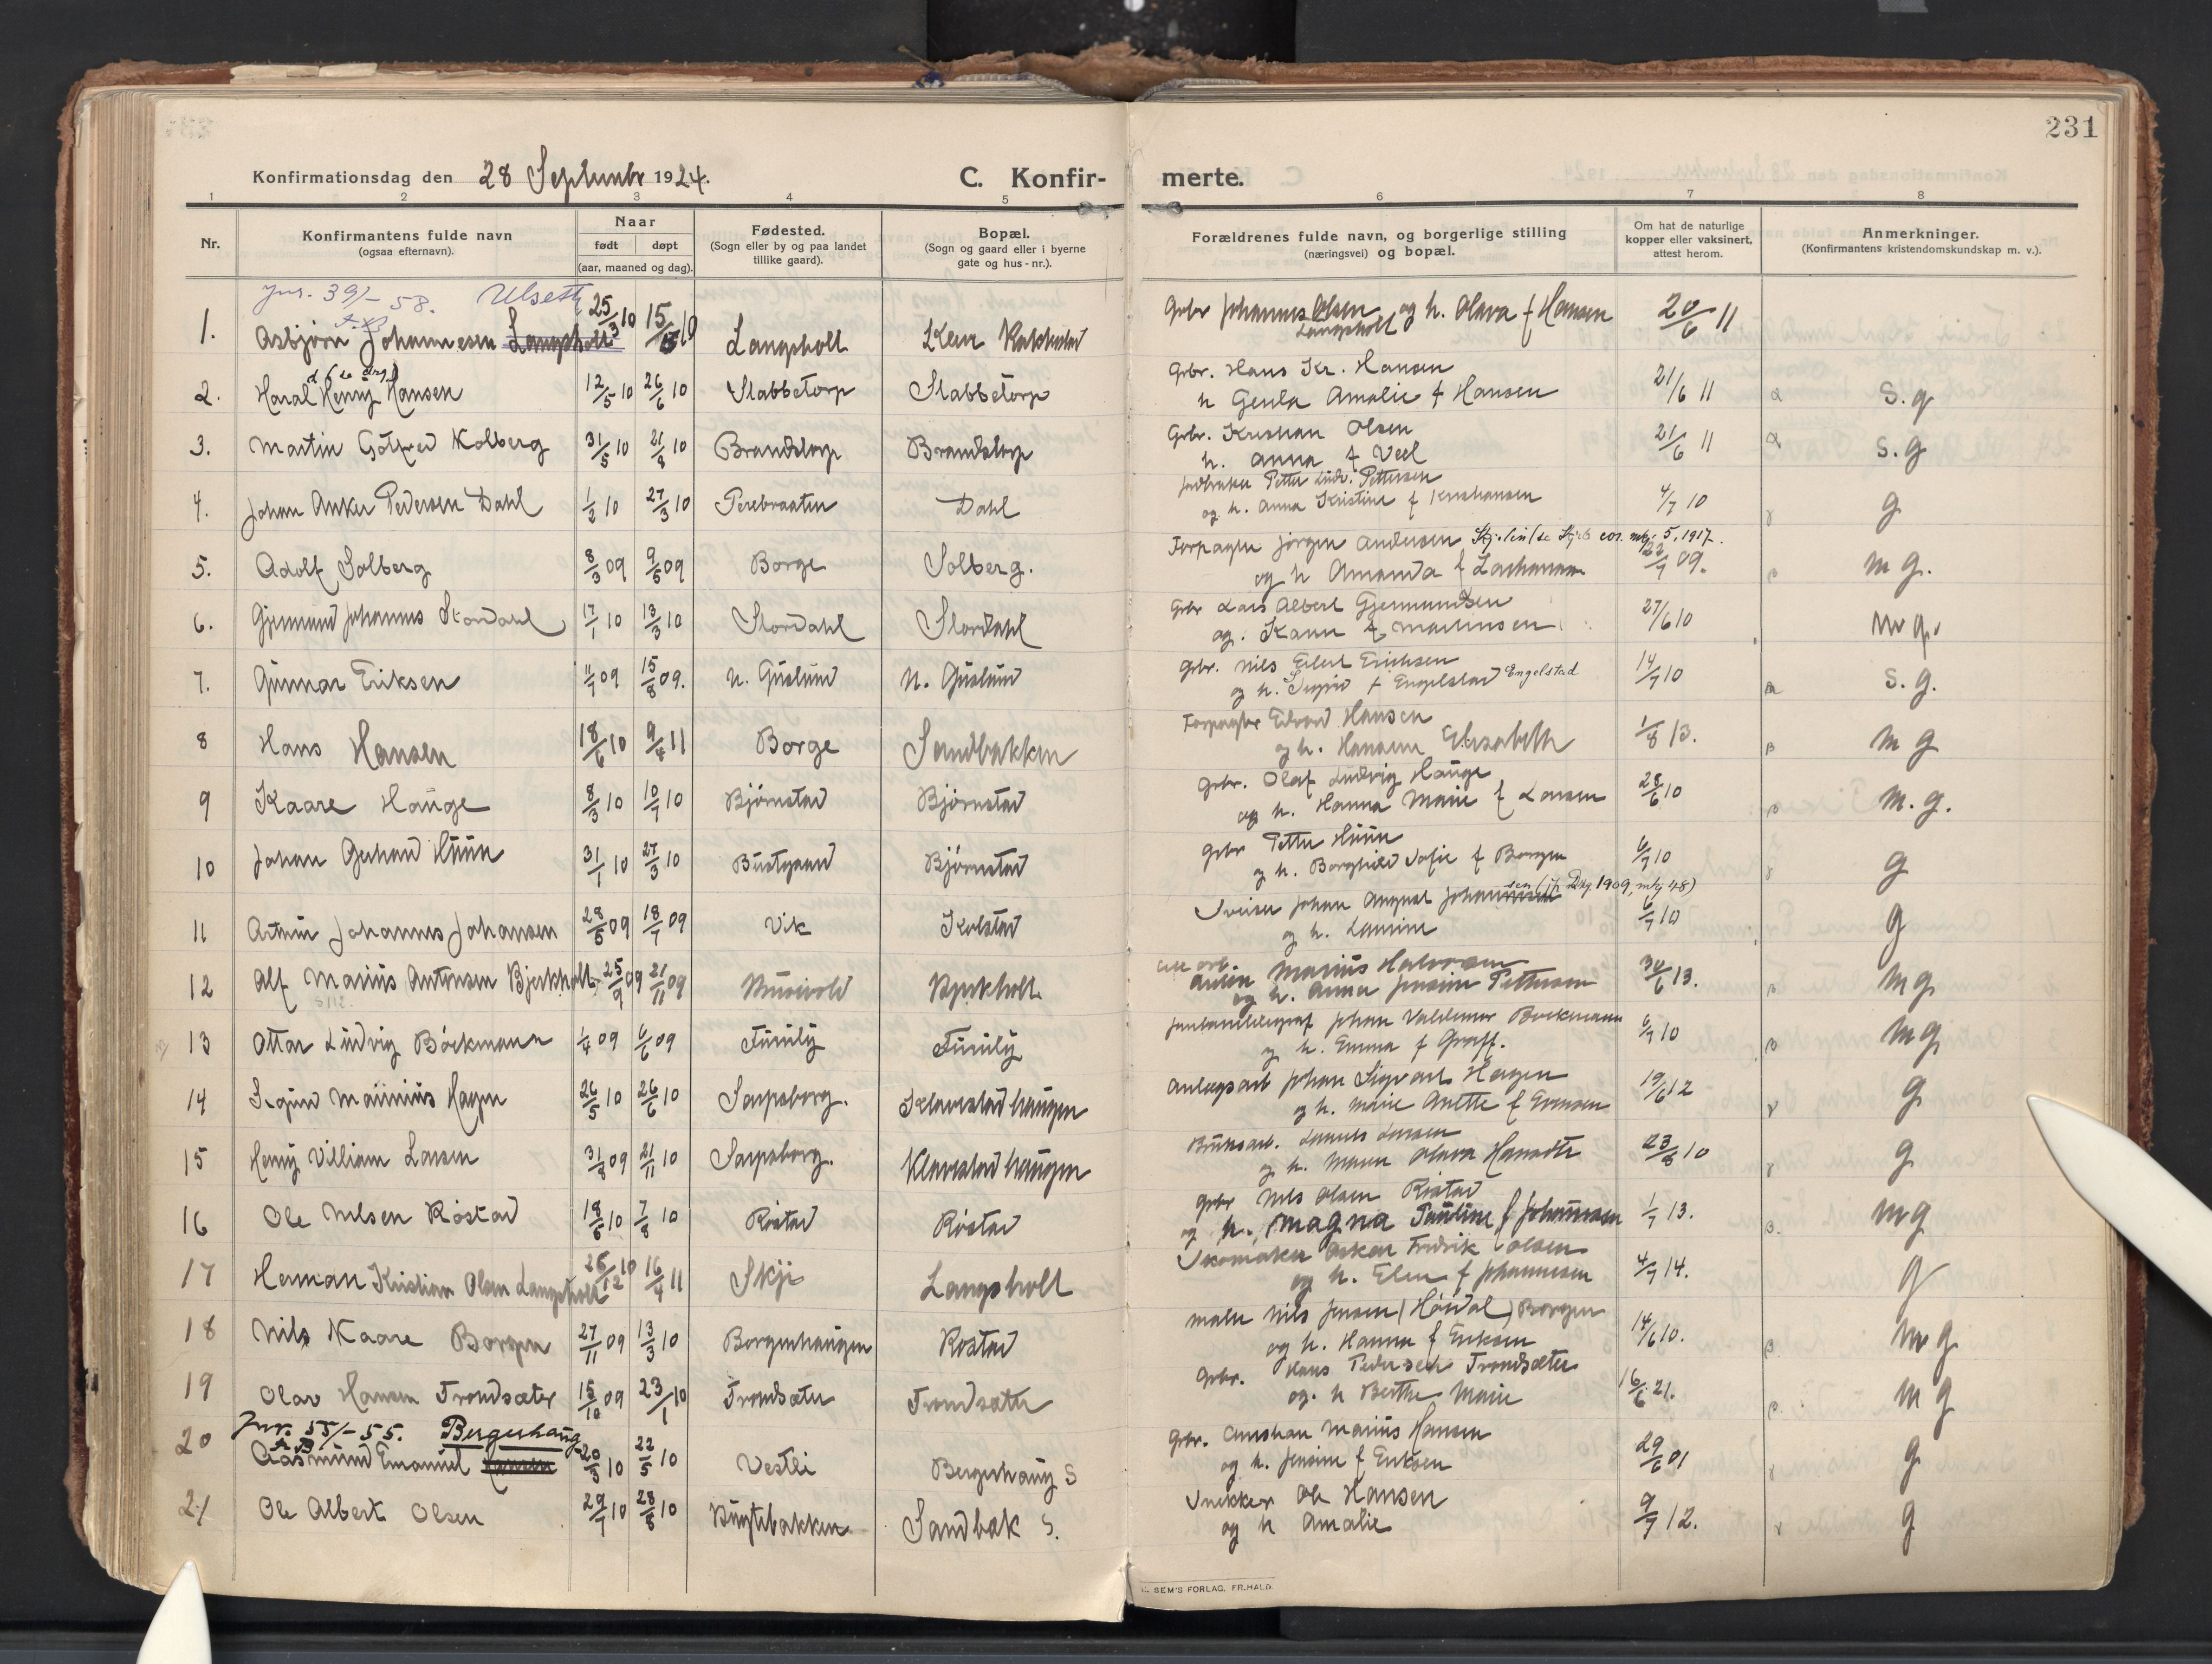 231
Konfirmationsdag den 28 Septembr 1924. C. Konfir- merte.
1 2 3 4 5 6 7 8
Nr. Konfirmantens fulde navn (ogsaa efternavn). Naar født døpt (aar, maaned og dag). Fødested. (Sogn eller by og paa landet tillike gaard). Bopæl. (Sogn og gaard eller i byerne gate og hus-nr.). Forældrenes fulde navn, og borgerlige stilling (næringsvei) og bopæl. Om hat de naturlige kopper eller vaksinert, attest herom. Anmerkninger. (Konfirmantens kristendomskundskap m. v.).
Jnr. 39/-58. Ulseth
1. Asbjørn Johannesen Langsholt 25/3 10 15/5 10 Langsholt Grbr Johannes Olsen Langsholt og h. Olava f Hansen 20/6 11
2. Harald Henry Hansen 12/5 10 26/6 10 Stabbetorp Stabbetorp Grbr. Hans Kr. Hansen
h Amalie f Hansen 21/6 11 S.g
3. Martin Gotfred Kolberg 31/5 10 21/8 10 Brandstorp Brandstorp Grbr. Kristian Olsen
h. Anna f Veel 21/6 11 S.g
4. Johan Anker Pedersen Dahl 1/2 10 27/3 10 Perebraaten Dahl Petter Ludv. Pettersen
og h. Anna Kristine f Kristiansen 4/7 10 g
5. Adolf Solberg 8/3 09 9/5 09 Borge Solberg. Forpagter Jørgen Andersen 5, 1917.
og h Amanda f Zachariasen 22/7 09. mg.
6. Gjermund Johannes Stordahl 17/1 10 13/3 10 Stordahl Stordahl Grbr Lars Albert Gjermundsen
og. Karen f Martinsen 27/6 10 mg.
7. Gunnar Eriksen 11/7 09 15/8 09. N. Guslund N. Guslund Grbr. Nils Eriksen
og h. Sigrid f Engelstad Engelstad 14/7 10 S.g.
8 Hans Hansen 18/6 10 9/4 11 Borge Sandbakken Forpagter Edvard Hansen
og h. Hansen Elisabeth 1/8 13. mg
9 Kaare Hauge 8/3 10 10/7 10 Bjørnstad Bjørnstad Grbr. Olaf Ludvig Hauge
og h. Hanna Marie f Larsen 28/6 10 m.g.
10 Johan Gerhard Huun 31/1 10 27/3 10 Bustgaard Bjørnstad Grbr Petter Huun
og h. Borghild Sofie f Borgen 6/7 10 g
11 Johannes Johansen 28/5 09 18/7 09 Vik Kolstad Sveiser Johan August (jfr. 1909, 48)
og h. Laurine 6/7 10 g
12 Alf Marius Antonsen Bjerkholt 25/9 09 21/11 09 Bjerkholt Anton Marius Halvorsen
og h. Anna Jensine Pettersen 30/6 13. mg
13 Ottar Ludvig Böckmann 1/4 09 6/6 09 Furuly Furuly Johan Valdemar Böckmann
og h. Emma f Graff. 6/7 10 mg
14 Sigurd Maurius Hagen 26/5 10 26/6 10 Sarpsborg. Klavestadhaugen Anlægsarb Johan Sigvart Hagen
og h. Marie Anette f Evensen 19/6 12 g
15 Henry Villiam Larsen 31/8 09 21/11 10 Sarpsborg. Klavestadhaugen Bruksarb. Larsen
og h. Olava Hansdtr 23/8 10 g
16 Ole Nilsen Röstad 18/6 10 7/8 10 Röstad Röstad Grbr Nils Olsen Röstad
og h. Magna Pauline f Johannesen 1/7 13. mg
17 Herman Kristian Olsen Langsholt 26/12 10 16/4 11 Skji Langsholt Skomaker Oskar Fredrik Olsen
og h. Elen f Johannesen 4/7 14. g
18 Nils Kaare Borgen 27/11 09 13/3 10 Borgenhaugen Röstad Maler Nils Jensen (Hövdal) Borgen
og h. Hanna f Eriksen 14/6 10. mg
19 Olav Hansen Trondsæter 15/10 09 23/1 10 Trondsæter Trondsæter Grbr. Hans Pedersen Trondsæter
og h Berthe Marie 16/6 21. mg
Jnr. 55/-55. Bergerhaug
20 Aasmund Emanuel Hansen 20/3 10 22/5 10 Vestli Bergerhaug S Grbr. Marius Hansen
og h. Jensine f Eriksen 29/6 01 g
21 Ole Albert Olsen 29/7 10 28/8 10 Sandbæk S. Snekker Ole Hansen
og h Amalie 9/7 12. g
SEM'S FORLAG. FR.HALD